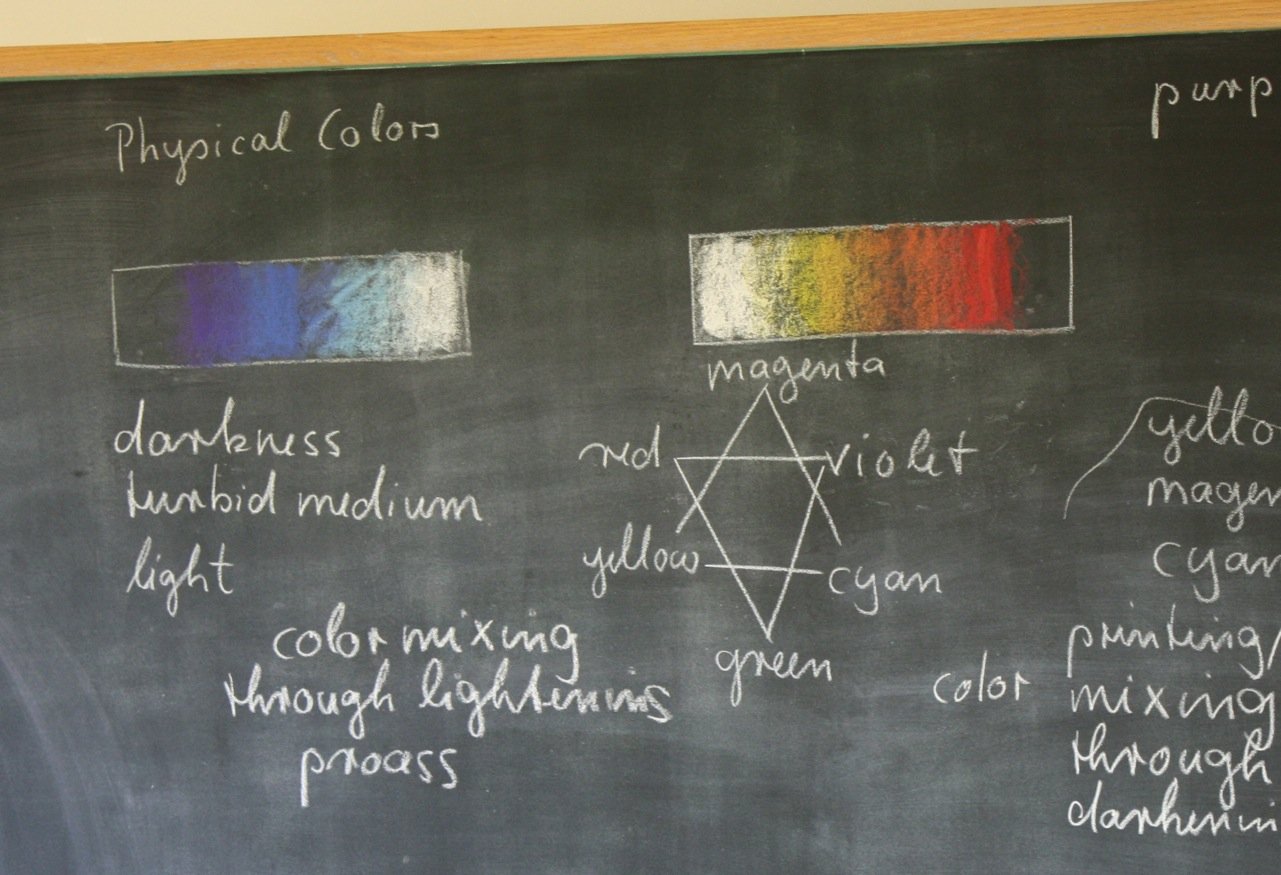 Physical Colors
purp
magenta
red
violet
yellow
cyan
green
darkness
turbid medium
light
color mixing
through lightening
process
yello
magen
cyan
printing/
color mixing
through
darkenin